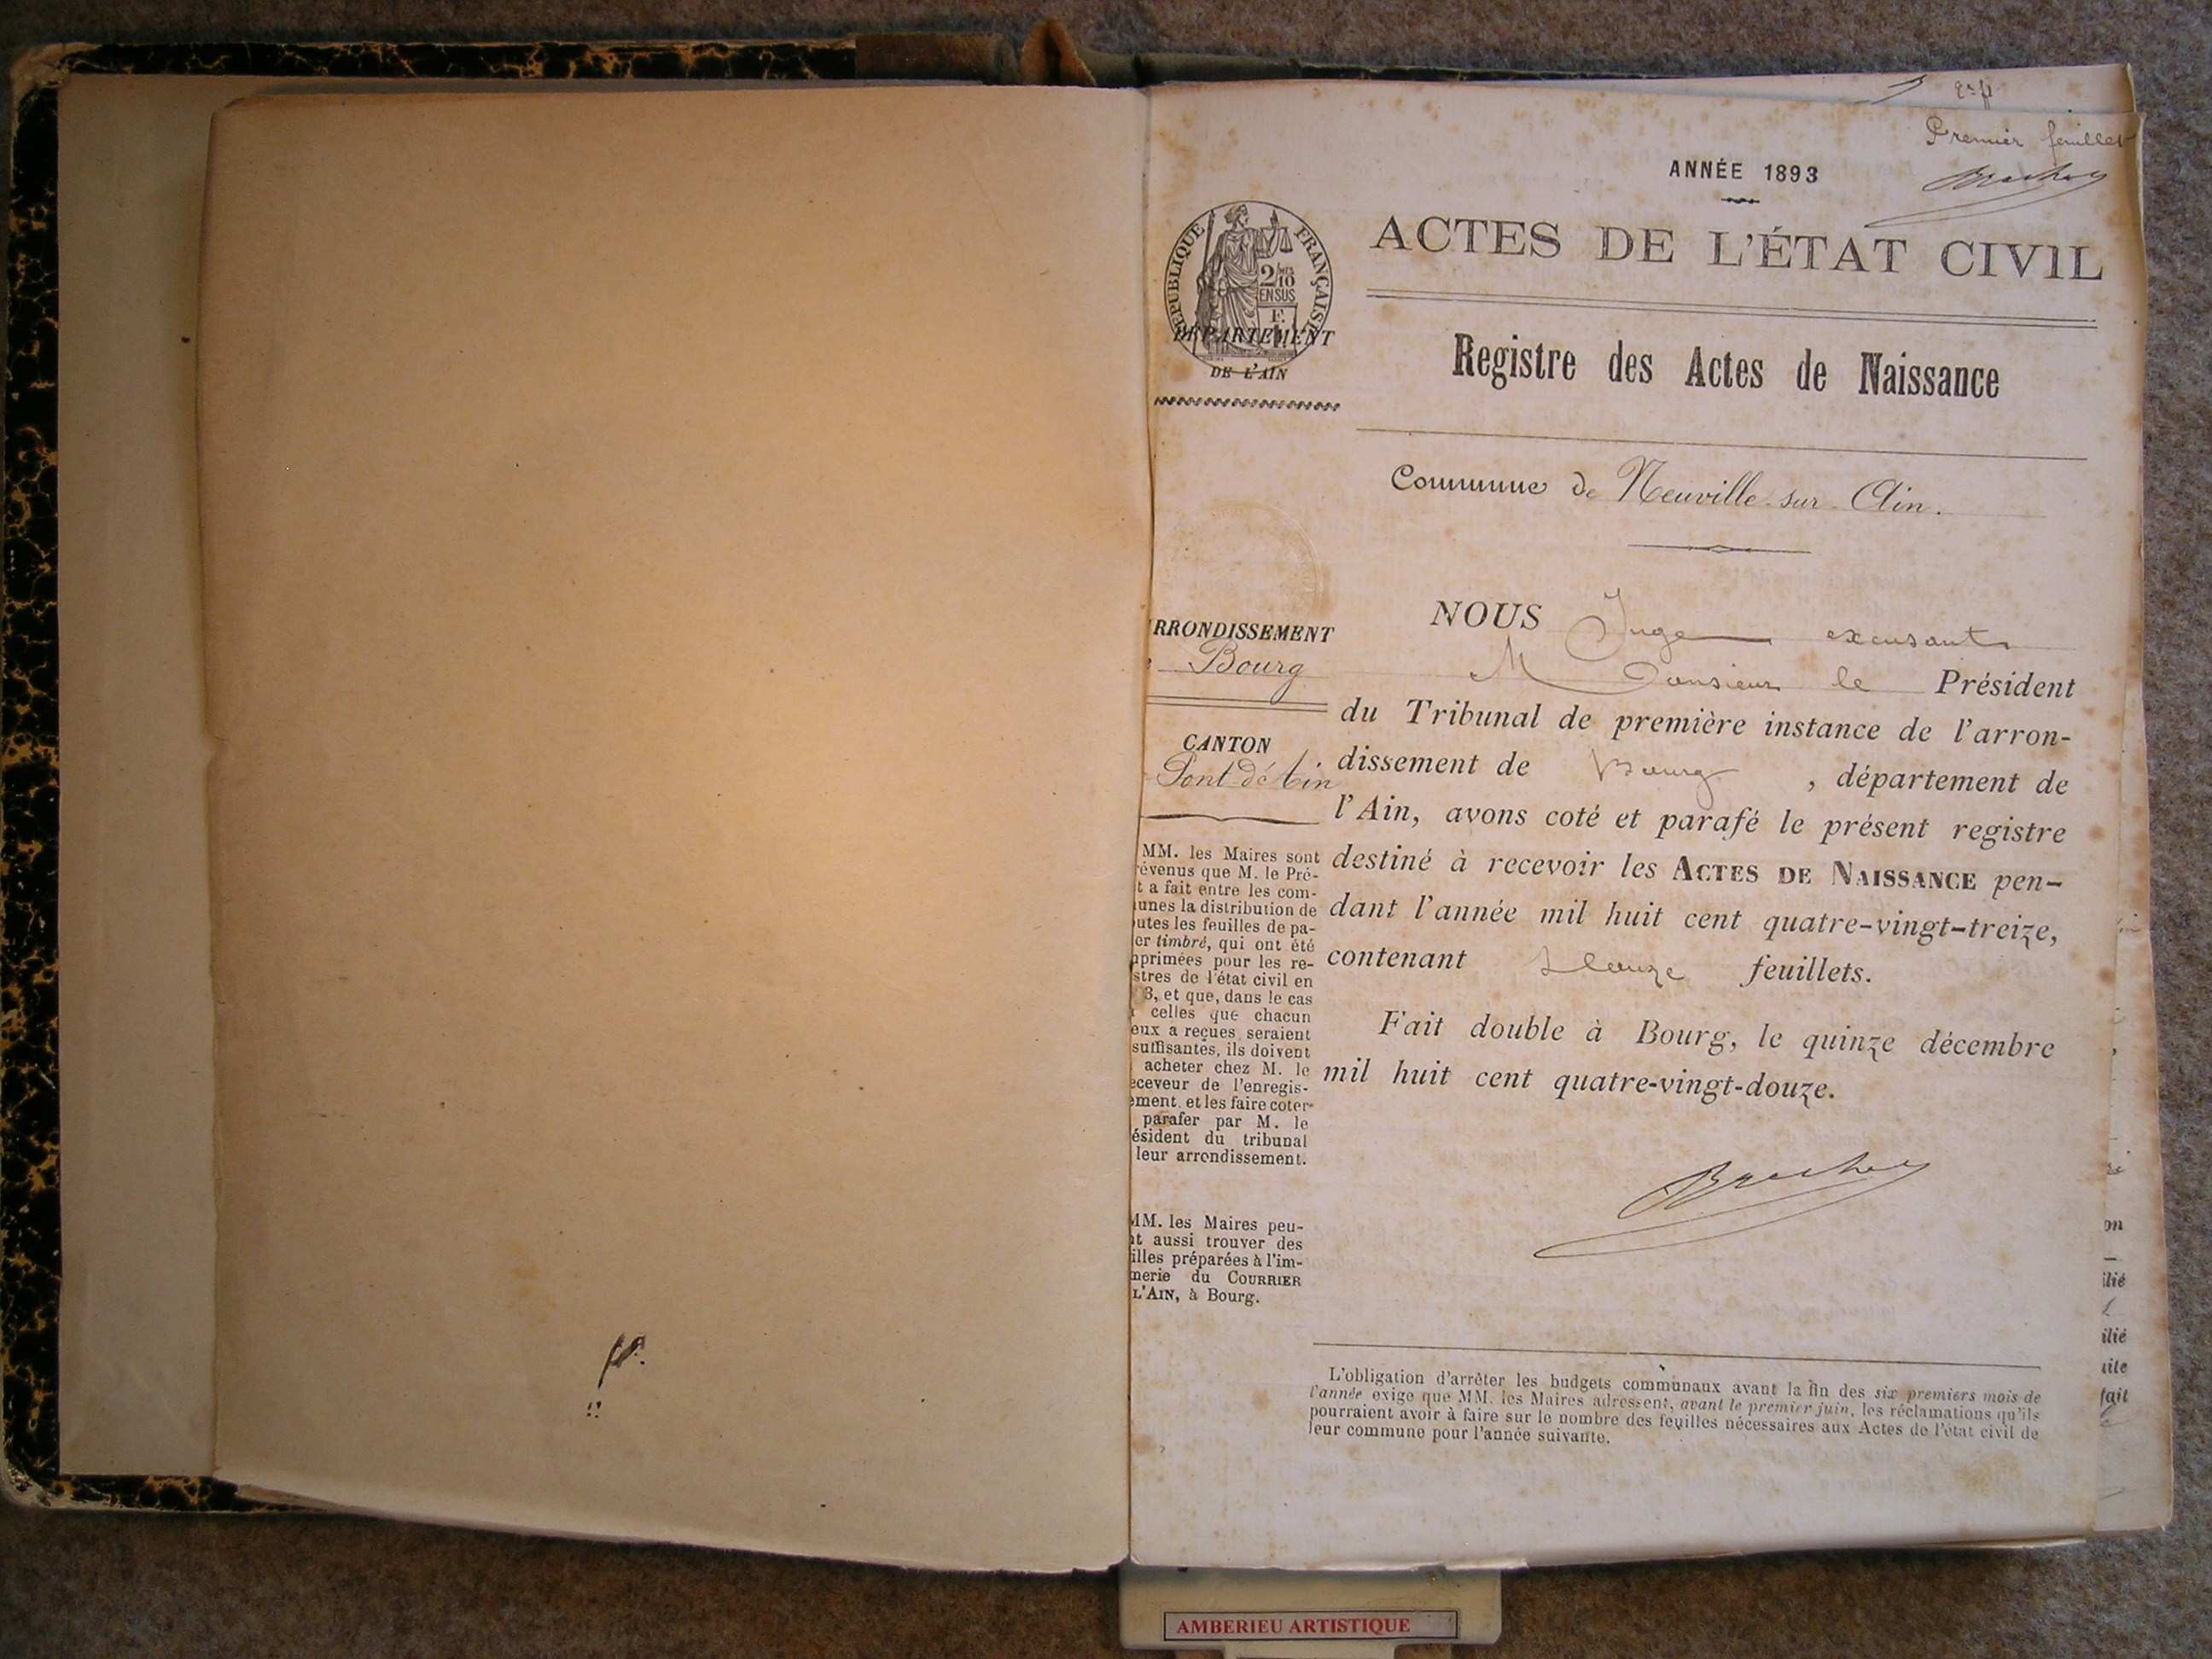 Premier feuillet
ANNÉE 1893
ACTES DE L'ÉTAT CIVIL
RÉPUBLIQUE FRANÇAISE
2/10
EN SUS
DÉPARTEMENT
DE L'AIN
Registre des Actes de Naissance
Commune de Neuville-sur-Ain.
RRONDISSEMENT
Bourg
CANTON
Pont-d'Ain
MM. les Maires sont
révenus que M. le Pré-
t a fait entre les com-
unes la distribution de
utes les feuilles de pa-
er timbré, qui ont été
primées pour les re-
stres de l'état civil en
3, et que, dans le cas
celles que chacun
eux a reçues seraient
suffisantes, ils doivent
acheter chez M. le
eceveur de l'enregis-
ement, et les faire coter
parafer par M. le
ésident du tribunal
leur arrondissement.
MM. les Maires peu-
nt aussi trouver des
illes préparées à l'im-
merie du COURRIER
L'AIN, à Bourg.
NOUS Juge
Monsieur le Président
du Tribunal de première instance de l'arron-
dissement de Bourg, département de
l'Ain, avons coté et parafé le présent registre
destiné à recevoir les ACTES DE NAISSANCE pen-
dant l'année mil huit cent quatre-vingt-treize,
contenant feuillets.
Fait double à Bourg, le quinze décembre
mil huit cent quatre-vingt-douze.
L'obligation d'arrêter les budgets communaux avant la fin des six premiers mois de
l'année exige que MM. les Maires adressent, avant le premier juin, les réclamations qu'ils
pourraient avoir à faire sur le nombre des feuilles nécessaires aux Actes de l'état civil de
leur commune pour l'année suivante.
on
ilié
ilié
uite
fait
AMBERIEU ARTISTIQUE